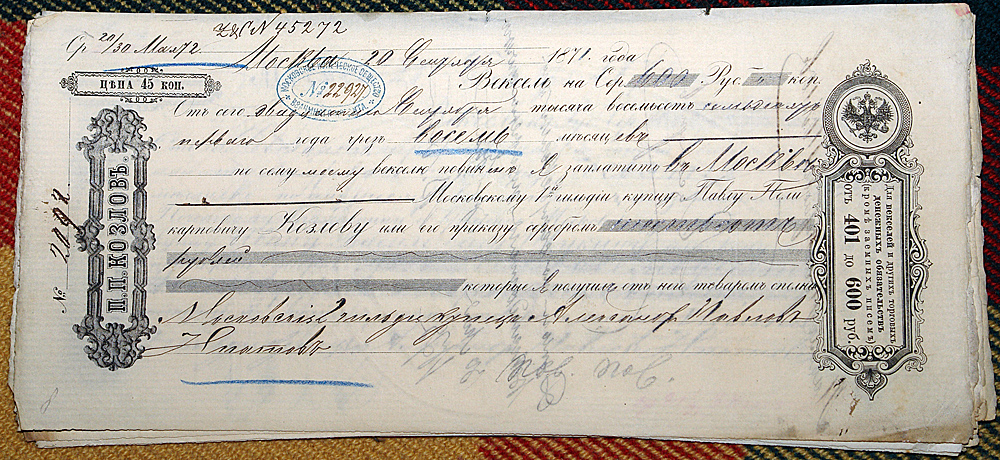 № 45272
Ср 20/30 Мая 72
Москва 20 Сентября 1871 года
ЦѢНА 45 КОП.
№ 22927
Вексель на Сер. 600 Руб. коп.
Отъ сего двадцатаго Сентября тысяча восемьсотъ семьдесятъ
перваго года чрезъ восемь мѣсяцевъ
по сему моему векселю повиненъ я заплатить въ Москвѣ
Московскому 1й гильдіи купцу Павлу Поли
карповичу Козлову или его приказу серебромъ шестьсотъ
рублей
которые я получилъ отъ него товаромъ сполна
Московскій 2 гильдіи купецъ Павловъ
П.П. КОЗЛОВЪ.
№ 2097
Для векселей и другихъ торговыхъ
денежныхъ обязательствъ
(кромѣ заемныхъ писемъ)
ОТЪ 401 ДО 600 РУБ.